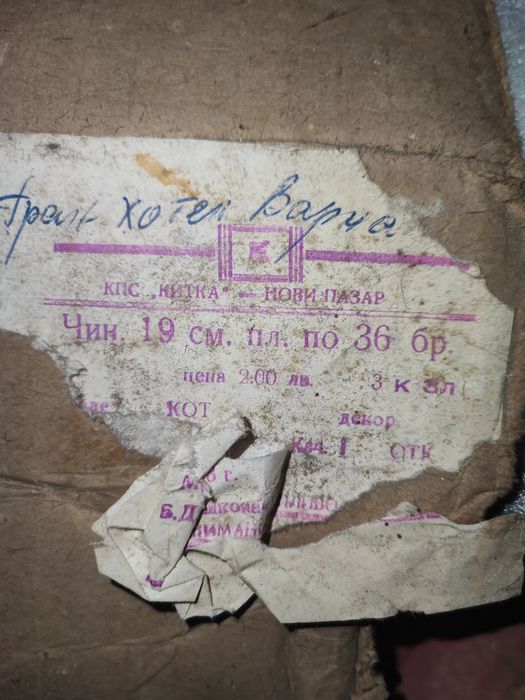 Гранд Хотел Варна
К
КПС „КИТКА" — НОВИ ПАЗАР
Чин. 19 см. пл. по 36 бр.
цена 2.00 лв. 3 к зл
КОТ декор
Кач. I ОТК
Б.Д